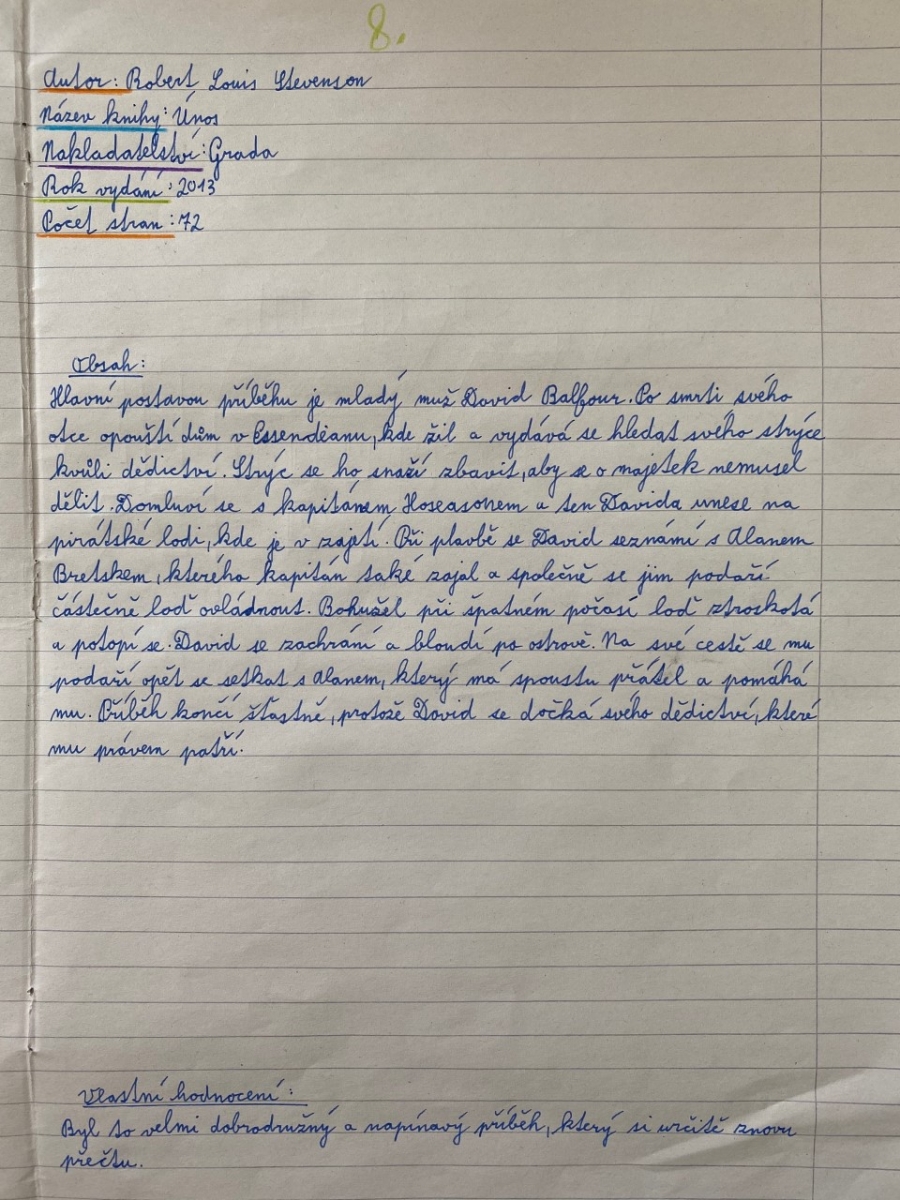 8.
Autor: Robert Louis Stevenson
Název knihy: Únos
Nakladatelství: Grada
Rok vydání: 2013
Počet stran: 72
Obsah:
Hlavní postavou příběhu je mladý muž David Balfour. Po smrti svého
otce opouští dům v Essendeanu, kde žil a vydává se hledat svého strýce
kvůli dědictví. Strýc se ho snaží zbavit, aby se o majetek nemusel
dělit. Domluví se s kapitánem Hoseasonem a ten Davida unese na
pirátské lodi, kde je v zajetí. Při plavbě se David seznámí s Alanem
Bretskem, kterého kapitán také zajal a společně se jim podaří
částečně loď ovládnout. Bohužel při špatném počasí loď ztroskotá
a potopí se. David se zachrání a bloudí po ostrově. Na své cestě se mu
podaří opět se setkat s Alanem, který má spoustu přátel a pomáhá
mu. Příběh končí šťastně, protože David se dočká svého dědictví, které
mu právem patří.
Vlastní hodnocení:
Byl to velmi dobrodružný a napínavý příběh, který si určitě znovu
přečtu.